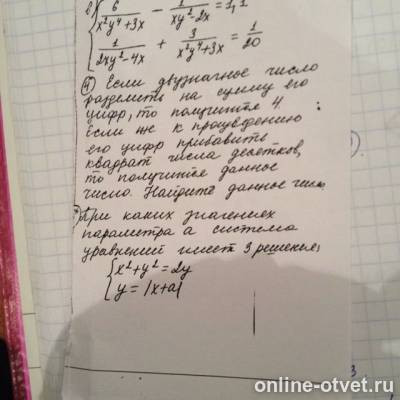 в) { 6/(x²y⁴+3x) − 1/(xy²−2x) = 1,1
1/(2xy²−4x) + 3/(x²y⁴+3x) = 1/20
4) Если двузначное число
разделить на сумму его
цифр, то получится 4
Если же к произведению
его цифр прибавить
квадрат числа десятков,
то получится данное
число. Найдите данное число
При каких значениях
параметра а система
уравнений имеет 3 решения:
{ x²+y²=2y
y=|x+a|
3
online-otvet.ru